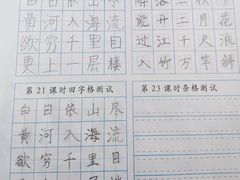 黄河入海流
欲穷千里目
更上一层楼
降
解
能开二月花
过江千尺浪
入竹万竿斜
第21课时田字格测试
白日依山尽
黄河入海流
欲穷千里目
第23课时条格测试